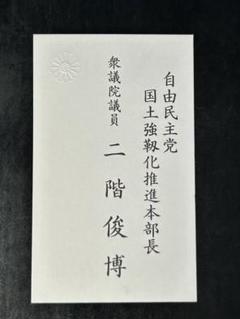 自由民主党
国土強靱化推進本部長
衆議院議員 二階俊博